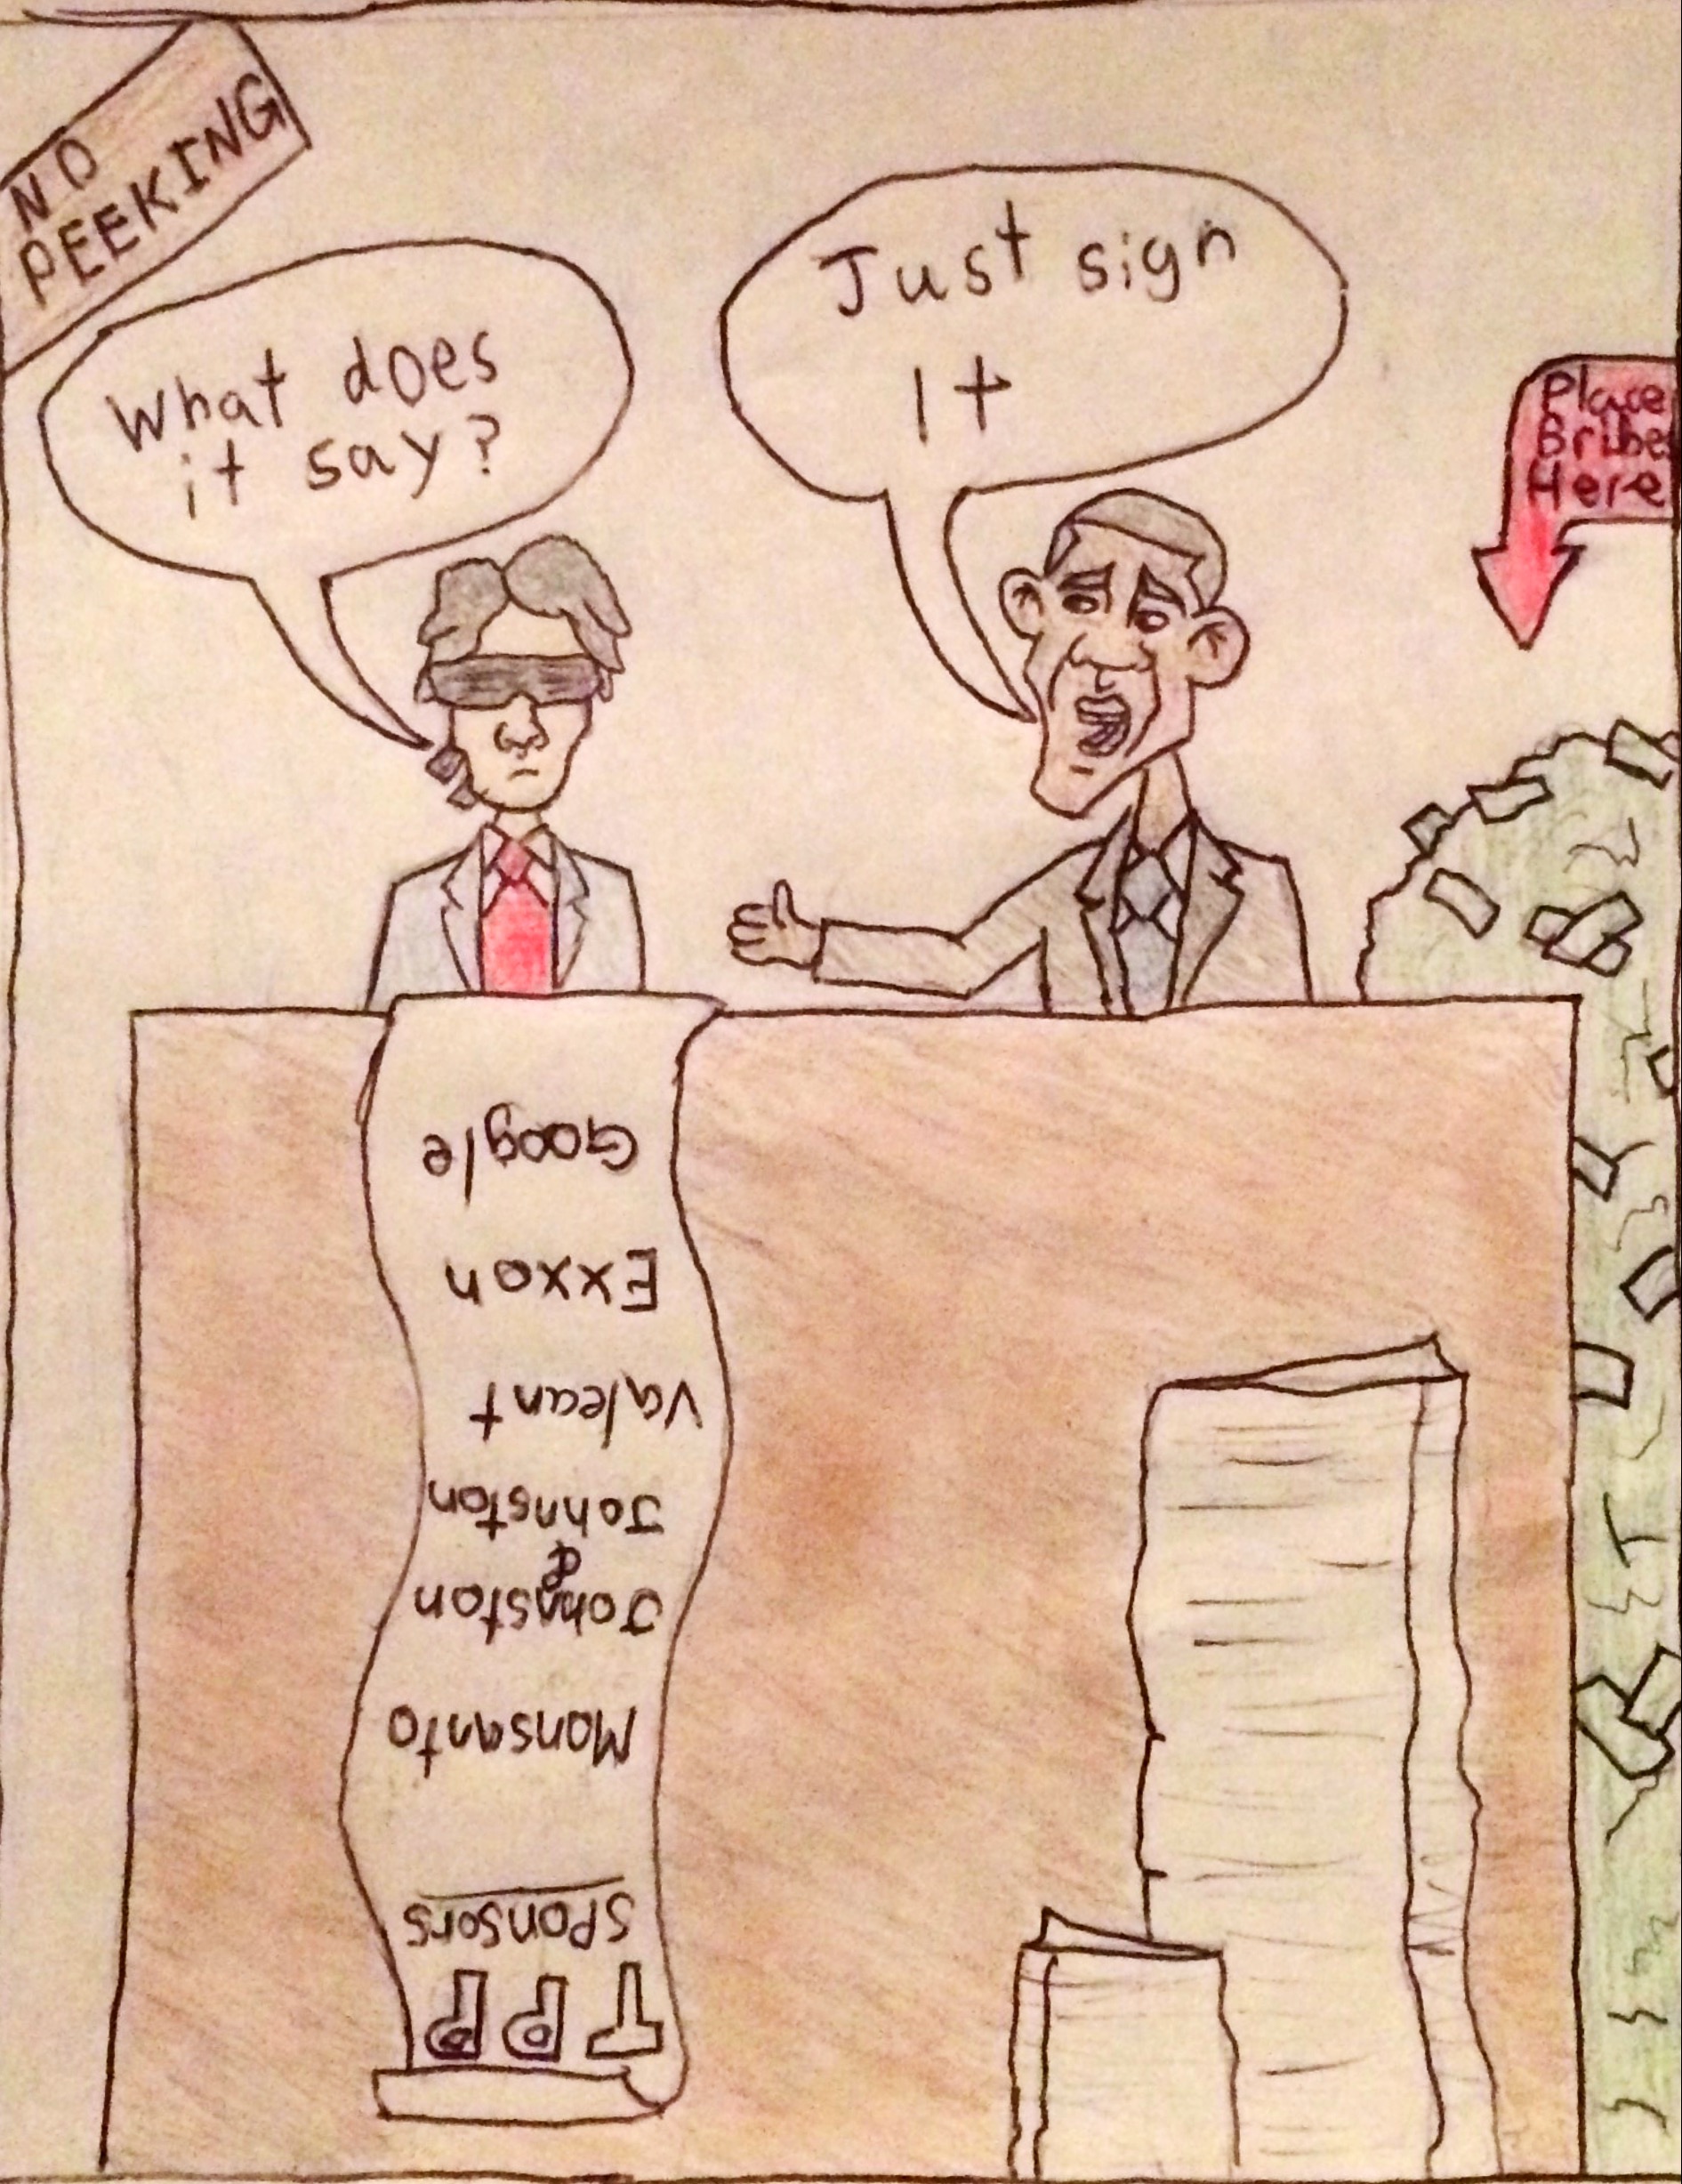 NO
PEEKING
What does
it say?
Just sign
It
Place
Bribes
Here
TPP
Sponsors
Monsanto
Johnston
&
Johnston
Valeant
Exxon
Google